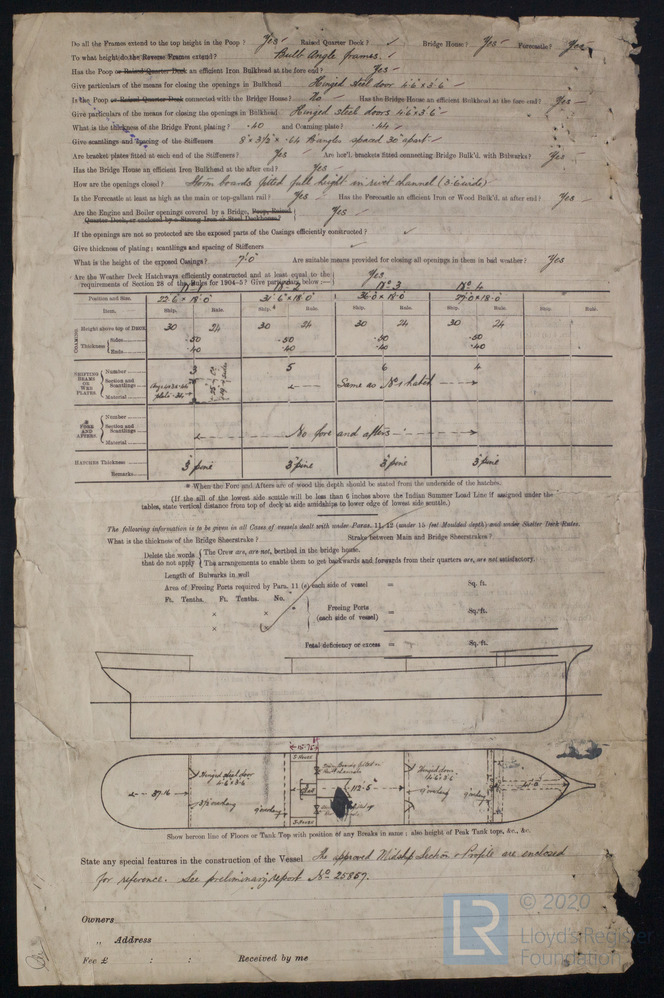 Do all the Frames extend to the top height in the Poop? Yes Raised Quarter Deck? ✓ Bridge House? Yes Forecastle? Yes
To what height do the Reverse Frames extend? Built Angle frames.
Has the Poop or Raised Quarter Deck an efficient Iron Bulkhead at the fore end? Yes
Give particulars of the means for closing the openings in Bulkhead Hinged steel door 4'6"x3'6"
Is the Poop or Raised Quarter Deck connected with the Bridge House? No Has the Bridge House an efficient Bulkhead at the fore end? Yes
Give particulars of the means for closing the openings in Bulkhead Hinged steel doors 4'6"x3'6"
What is the thickness of the Bridge Front plating? .40 and Coaming plate? .44
Give scantlings and spacing of the Stiffeners 8"x3½"x.64 B angles spaced 30" apart
Are bracket plates fitted at each end of the Stiffeners? Yes Are hor'l. brackets fitted connecting Bridge Bulk'd. with Bulwarks? Yes
Has the Bridge House an efficient Iron Bulkhead at the after end? Yes
How are the openings closed? Storm boards fitted full height in rivet channel (3'6" wide)
Is the Forecastle at least as high as the main or top-gallant rail? Yes Has the Forecastle an efficient Iron or Wood Bulk'd. at after end? Yes
Are the Engine and Boiler openings covered by a Bridge, Poop, Raised
Quarter Deck, or enclosed by a Strong Iron or Steel Deckhouse? Yes
If the openings are not so protected are the exposed parts of the Casings efficiently constructed? ✓
Give thickness of plating; scantlings and spacing of Stiffeners ✓
What is the height of the exposed Casings? 7'0" Are suitable means provided for closing all openings in them in bad weather? Yes
Are the Weather Deck Hatchways efficiently constructed and at least equal to the
requirements of Section 28 of the Rules for 1904-5? Give particulars below:— Yes
No 1 No 2 No 3 No 4
Position and Size. 22'6"x18'0" 31'6"x18'0" 36'0"x18'0" 27'0"x18'0"
Item. Ship. Rule. Ship. Rule. Ship. Rule. Ship. Rule. Ship. Rule.
COAMING Height above top of DECK 30 24 30 24 30 24 30 24
Thickness Sides .50 .50 .50 .50
Ends .40 .40 .40 .40
SHIFTING BEAMS OR WEB PLATES. Number 3 5 6 4
Section and Scantlings Same as No 1 hatch
Material
FORE AND AFTERS. Number
Section and Scantlings No fore and afters
Material
HATCHES Thickness 3" pine 3" pine 3" pine 3" pine
Remarks
* When the Fore and Afters are of wood the depth should be stated from the underside of the hatches.
(If the sill of the lowest side scuttle will be less than 6 inches above the Indian Summer Load Line if assigned under the
tables, state vertical distance from top of deck at side amidships to lower edge of lowest side scuttle.)
The following information is to be given in all Cases of vessels dealt with under Paras. 11, 12 (under 15 feet Moulded depth) and under Shelter Deck Rules.
What is the thickness of the Bridge Sheerstrake? Strake between Main and Bridge Sheerstrakes?
Delete the words that do not apply { The Crew are, are not, berthed in the bridge house.
The arrangements to enable them to get backwards and forwards from their quarters are, are not satisfactory.
Length of Bulwarks in well
Area of Freeing Ports required by Para. 11 (e) each side of vessel = Sq. ft.
Ft. Tenths. Ft. Tenths. No.
× ×
× ×
Freeing Ports (each side of vessel) = Sq. ft.
Total deficiency or excess = Sq. ft.
15.75
Hinged steel door 4'6"x3'6"
Hinged doors 4'6"x3'6"
112.5
Show hereon line of Floors or Tank Top with position of any Breaks in same; also height of Peak Tank tops, &c., &c.
State any special features in the construction of the Vessel The approved Midship Section & Profile are enclosed
for reference. See preliminary report No 25867.
Owners
„ Address
Fee £ : : Received by me
© 2020
LR
Lloyd's Register
Foundation